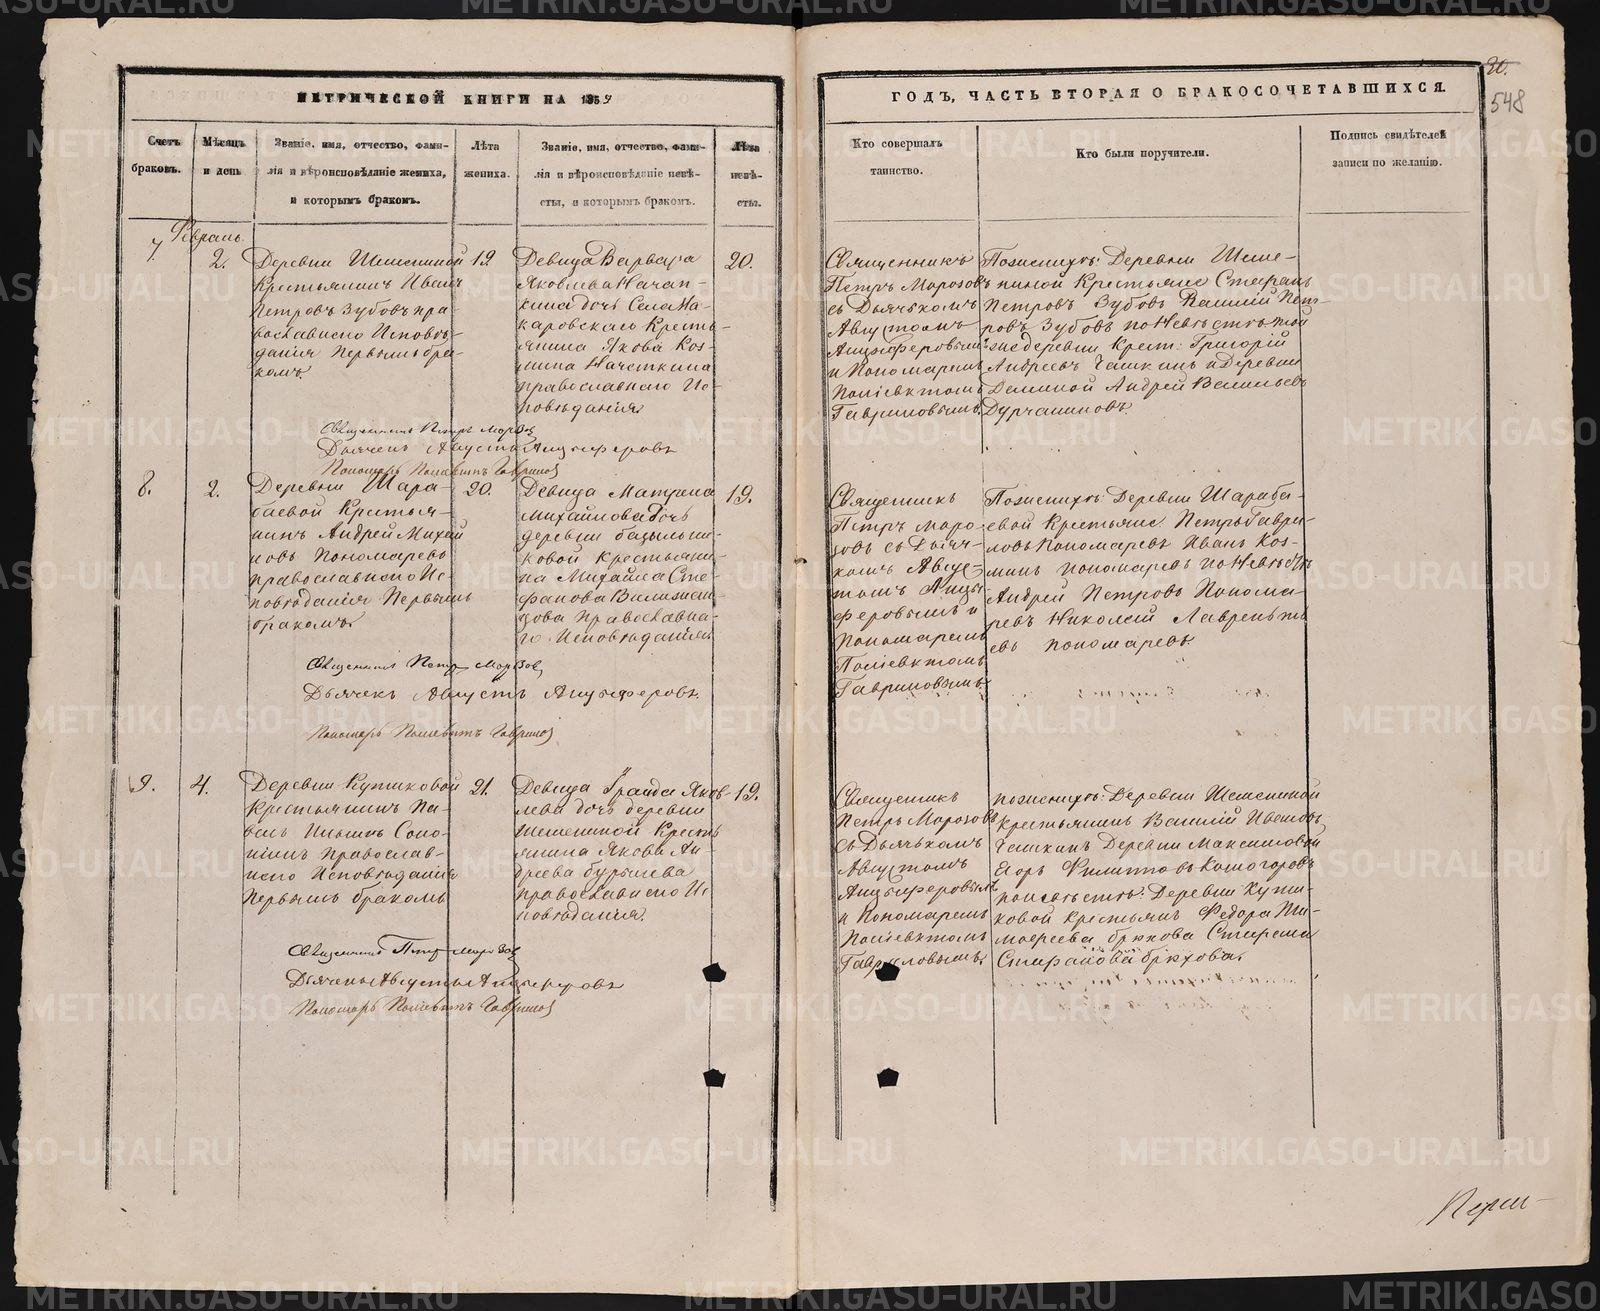 МЕТРИЧЕСКОЙ КНИГИ НА 1859
Счетъ
браковъ.
Мѣсяцъ
и день
Званіе, имя, отчество, фами-
лія и вѣроисповѣданіе жениха,
и которымъ бракомъ.
Лѣта
жениха.
Званіе, имя, отчество, фами-
лія и вѣроисповѣданіе невѣ-
сты, и которымъ бракомъ.
Лѣта
невѣ-
сты.
Февраль.
7.
2.
Деревни
крестьянинъ Иванъ
Петровъ Зубовъ пра-
вославнаго Исповѣ-
данія Первымъ бра-
комъ.
19.
Девица Варвара
Яковлева
дочь Села Ма-
каровскаго Кресть-
янина Якова Коз-
мина
православнаго Ис-
повѣданія
20.
Священникъ Петръ Морозов
Дьячекъ Августъ Анцыферовъ
Пономарь Поліевктъ Гаврилов
8.
2.
Деревни Шара-
баевой Крестья-
нинъ Андрей Михай
ловъ Пономаревъ
православнаго Ис-
повѣданія Первымъ
бракомъ
20.
Девица Матрена
Михайлова дочь
деревни
ковой крестьяни-
на Михайла Сте-
фанова
Православна-
го Исповѣданія
19.
Священникъ Петръ Морозов
Дьячекъ Августъ Анцыферовъ.
Пономарь Поліевктъ Гаврилов
9.
4.
Деревни Куликовой
Крестьянинъ Па-
велъ Ильинъ Соло-
нинъ Православ-
наго Исповѣданія
Первымъ бракомъ
21.
Девица Яков-
лева дочь деревни
Крестья
янина Якова Ан-
дреева
православнаго Ис
повѣданія.
19.
Священникъ Петръ Морозов
Дьячекъ Августъ Анцыферовъ
Пономарь Поліевктъ Гаврилов
20.
548
ГОДЪ, ЧАСТЬ ВТОРАЯ О БРАКОСОЧЕТАВШИХСЯ.
Кто совершалъ
таинство.
Кто были поручители.
Подпись свидѣтелей
записи по желанію.
Священникъ
Петръ Морозовъ
съ Дьячкомъ
Августомъ
Анцыферовымъ
и Пономаремъ
Поліевктомъ
Гавриловымъ
По женихѣ: Деревни
Крестьяне Стефанъ
Петровъ Зубовъ Василій Пет-
ровъ Зубовъ по Невѣстѣ той
же деревни Крест: Григорій
Андреевъ Чашкинъ и деревни
Деминой Андрей Васильевъ
Священникъ
Петръ Моро-
зовъ съ Дьяч-
комъ Авгус-
томъ Анцы-
феровымъ и
Пономаремъ
Поліевктомъ
Гавриловымъ
По женихѣ: Деревни Шараба-
евой Крестьяне Петръ Гаври-
ловъ Пономаревъ Иванъ Коз-
минъ Пономаревъ по Невѣстѣ
Андрей Петровъ Понома-
ревъ Николай Лаврентъ
евъ Пономаревъ
Священникъ
Петръ Морозовъ
съ Дьячкомъ
Августомъ
Анцыферовымъ
и Пономаремъ
Поліевктомъ
Гавриловымъ
по женихѣ: Деревни
крестьянинъ Василій Ивановъ
Чашкинъ Деревни Максимовой
Егоръ Филипповъ Комогоровъ
по невѣстѣ: Деревни Кули-
ковой крестьянъ Федора Ти-
мофеева Брюхова Стефана
Стефанова Брюхова.
METRIKI.GASO-URAL.RU